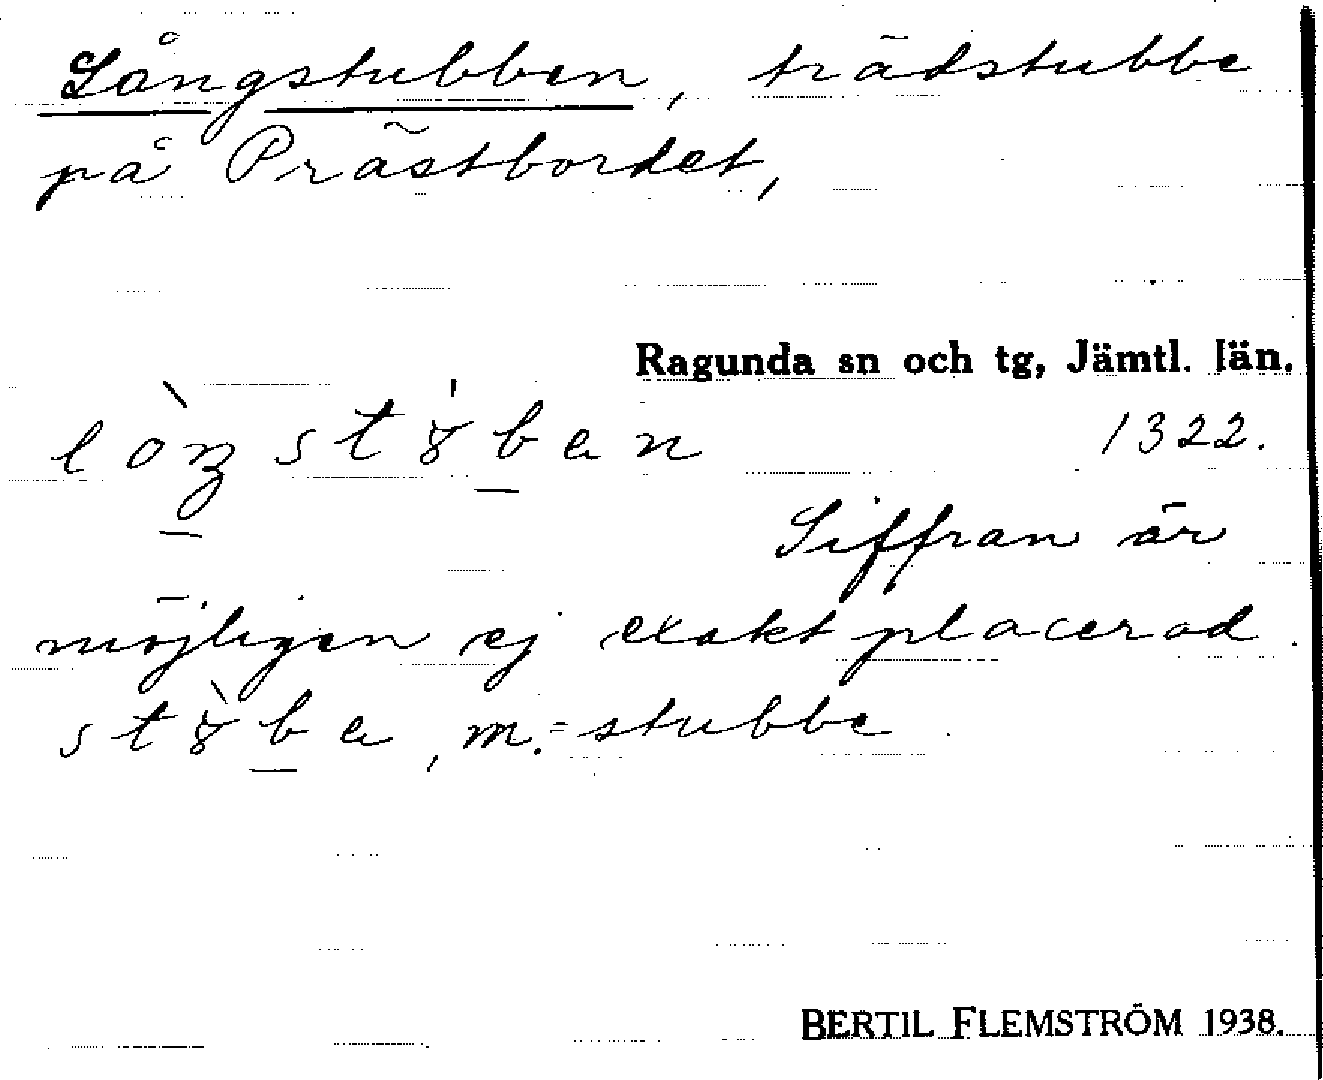 Långstubben, trädstubbe
på Prästbordet,
Ragunda sn och tg, Jämtl. län.
1322.
Siffran är
möjligen ej exakt placerad.
m. = stubbe
BERTIL FLEMSTRÖM 1938.